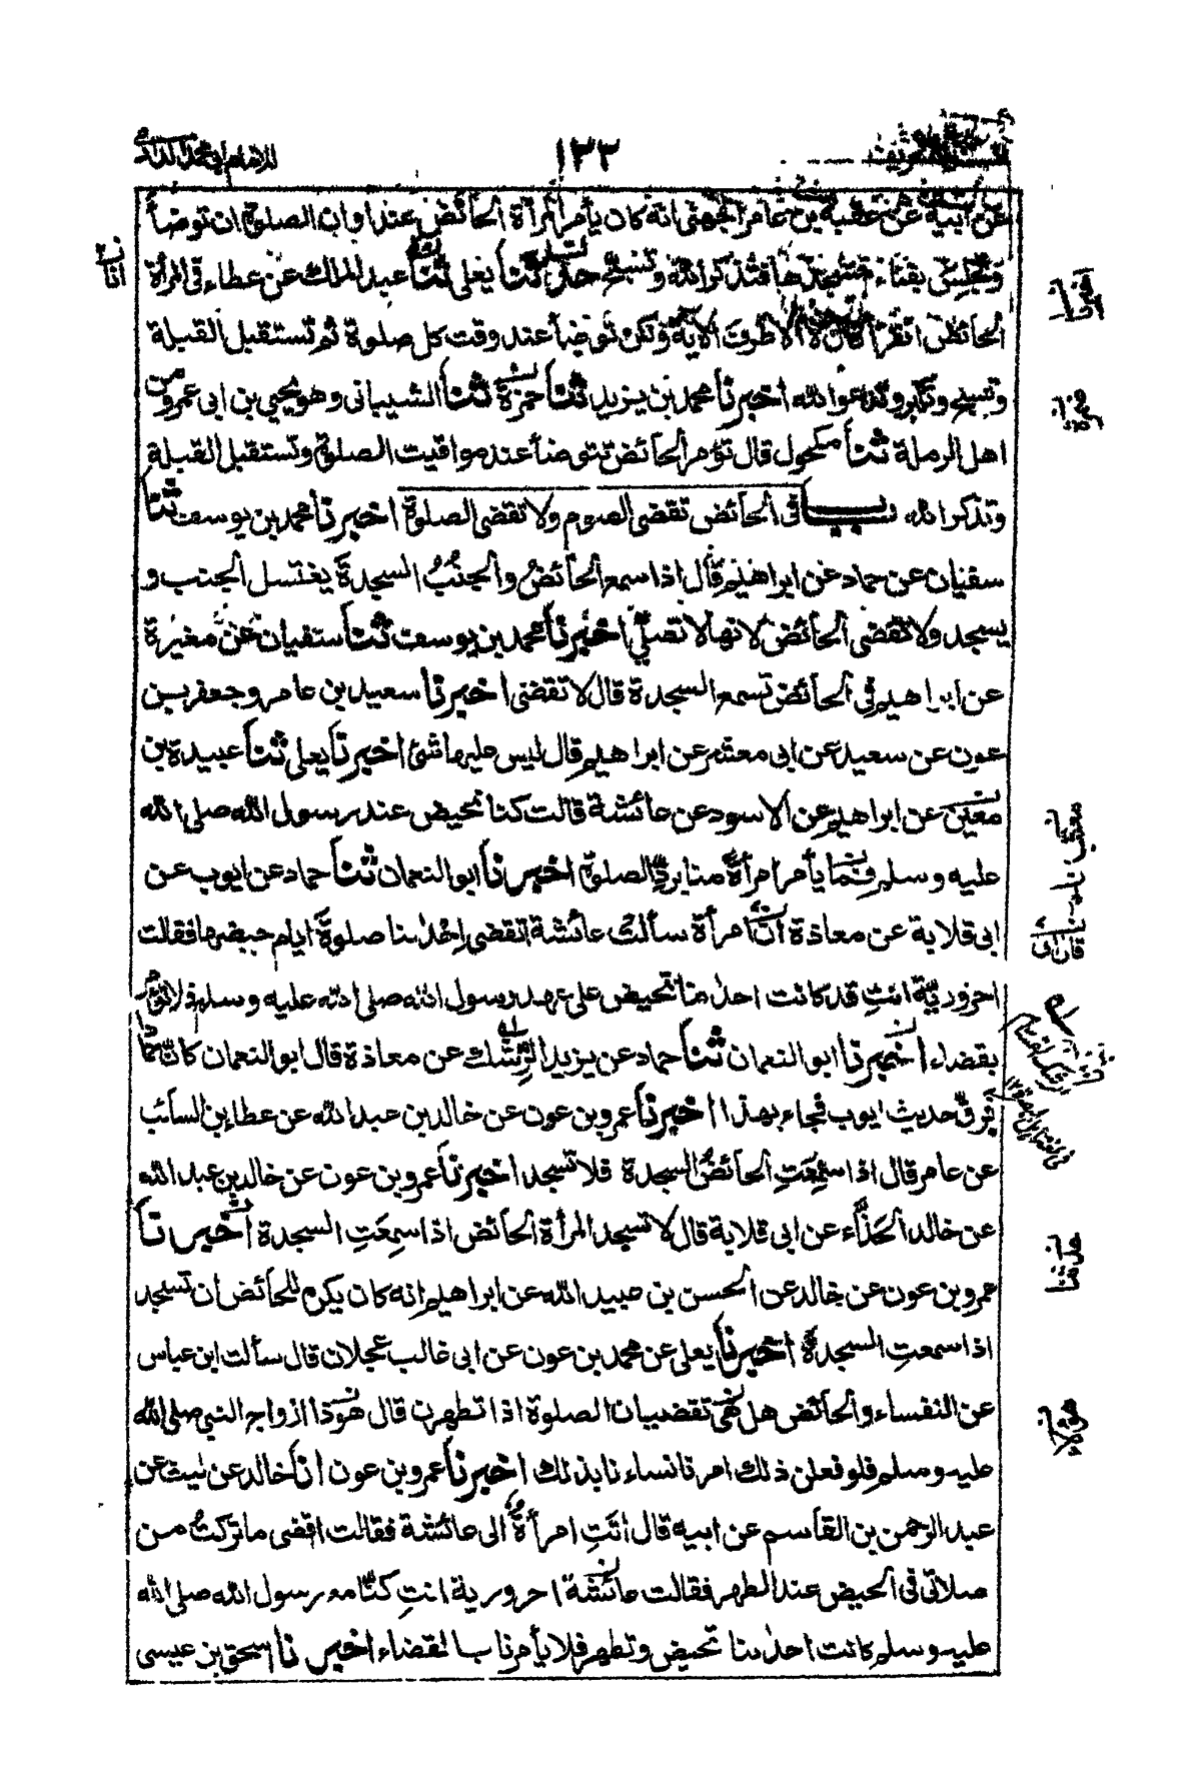 ١٣٢
عن ابيه عن عقبة بن عامر الجهنى انه كان يأمر المرأة الحائض عند اوان الصلوة ان توضأ
وتجلس بفناء مسجدها فتذكر الله وتسبح حدثنا يعلى ثنا عبد الملك عن عطاء فى المرأة
الحائض اتقرأ قال لا الا طرف الآية ولكن توضأ عند وقت كل صلوة ثم تستقبل القبلة
وتسبح وتكبر وتدعو الله اخبرنا محمد بن يزيد ثنا ضمرة ثنا الشيبانى وهو يحيى بن ابى عمرو من
اهل الرملة ثنا مكحول قال تؤمر الحائض تتوضأ عند مواقيت الصلوة وتستقبل القبلة
وتذكر الله باب فى الحائض تقضى الصوم ولا تقضى الصلوة اخبرنا محمد بن يوسف ثنا
سفيان عن حماد عن ابراهيم قال اذا سمع الحائضُ والجنُبُ السجدةَ يغتسل الجنب و
يسجد ولا تقضى الحائض لانها لا تصلى اخبرنا محمد بن يوسف ثنا سفيان عن مغيرة
عن ابراهيم فى الحائض تسمع السجدة قال لا تقضى اخبرنا سعيد بن عامر وجعفر بن
عون عن سعيد عن ابى معشر عن ابراهيم قال ليس عليها شئ اخبرنا يعلى ثنا عبيدة بن
معين عن ابراهيم عن الاسود عن عائشة قالت كنا نحيض عند رسول الله صلى الله
عليه وسلم فما يأمر امرأة منا بردّ الصلوة اخبرنا ابو النعمان ثنا حماد عن ايوب عن
ابى قلابة عن معاذة ان امرأة سألت عائشة اتقضى احدٰنا صلوة ايام حيضها فقالت
احرورية انتِ قد كانت احدٰنا تحيض على عهد رسول الله صلى الله عليه وسلم فلا تؤمر
بقضاء اخبرنا ابو النعمان ثنا حماد عن يزيد الرشك عن معاذة قال ابو النعمان كان حمادا
فرق حديث ايوب فجاء بهذا اخبرنا عمرو بن عون عن خالد بن عبد الله عن عطاء بن السائب
عن عامر قال اذا سمعتِ الحائضُ السجدة فلا تسجد اخبرنا عمرو بن عون عن خالد بن عبد الله
عن خالد الحذَّاء عن ابى قلابة قال لا تسجد المرأة الحائض اذا سمعَتِ السجدة اخبرنا
عمرو بن عون عن خالد عن الحسن بن عبيد الله عن ابراهيم انه كان يكره للحائض ان تسجد
اذا سمعتِ السجدة اخبرنا يعلى عن محمد بن عون عن ابى غالب عجلان قال سألت ابن عباس
عن النفساء والحائض هل تقضيان الصلوة اذا تطهرن قال هوذا ازواج النبى صلى الله
عليه وسلم فلو فعلن ذلك امرنا نساءنا بذلك اخبرنا عمرو بن عون انا خالد عن ليث عن
عبد الرحمن بن القاسم عن ابيه قال اتتِ امرأة الى عائشة فقالت اقضى ما تركتُ من
صلاتى فى الحيض عند الطهر فقالت عائشة احرورية انتِ كنا مع رسول الله صلى الله
عليه وسلم كانت احدٰنا تحيض وتطهر فلا يأمرنا بالقضاء اخبرنا اسحق بن عيسى